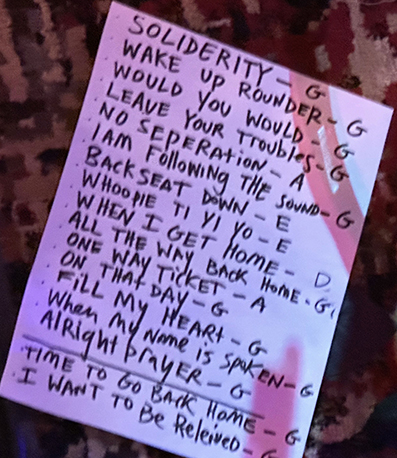 SOLIDERITY - G
WAKE UP ROUNDER - G
WOULD YOU WOULD - G
LEAVE YOUR TROUBLES - G
NO SEPERATION - A
I AM FOLLOWING THE SOUND - G
BACKSEAT DOWN - E
WHOOPIE TI YI YO - E
WHEN I GET HOME - D
ALL THE WAY BACK HOME - G
ONE WAY TICKET - A
ON THAT DAY - G
FILL MY HEART - G
When My Name is SpoKEN - G
AlRight PRAYER - G
TIME TO GO BACK HOME - G
I WANT TO Be Releived - G